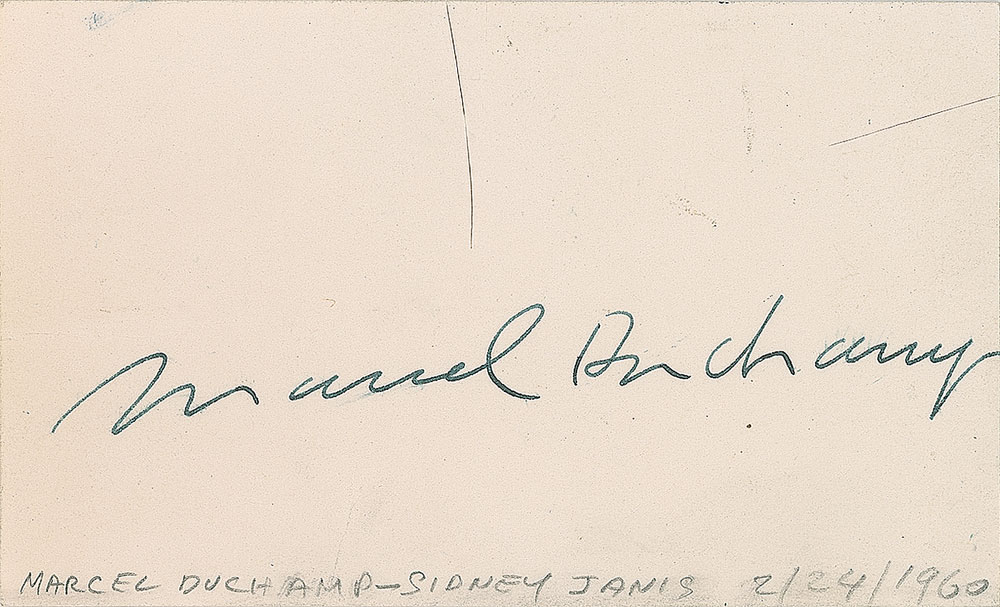 Marcel Duchamp
MARCEL DUCHAMP-SIDNEY JANIS 2/24/1960